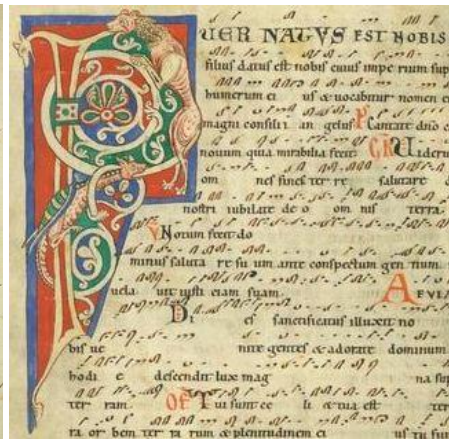 PUER NATUS EST NOBIS
filius datus est nobis cuius impe rium sup
humerum ei us & vocabitur nomen e
magni consili i an gelus P Cantate dño c
novum quia mirabilia fecit GR Uiderun
om nes fines ter re salutare
nostri iubilate deo om nis terra
V Notum fecit do
minus saluta re su um ante conspectum gen tium
uela vit iusti ciam suam A EVIA
Di es sanctificatus illuxit no
bis ue nite gentes & adorate dominum
hodi e descendit lux mag na sup
ter ram OF Tui sunt ce li & tua est ter
ra or bem ter ra rum & plenitudinem ei us tu fun